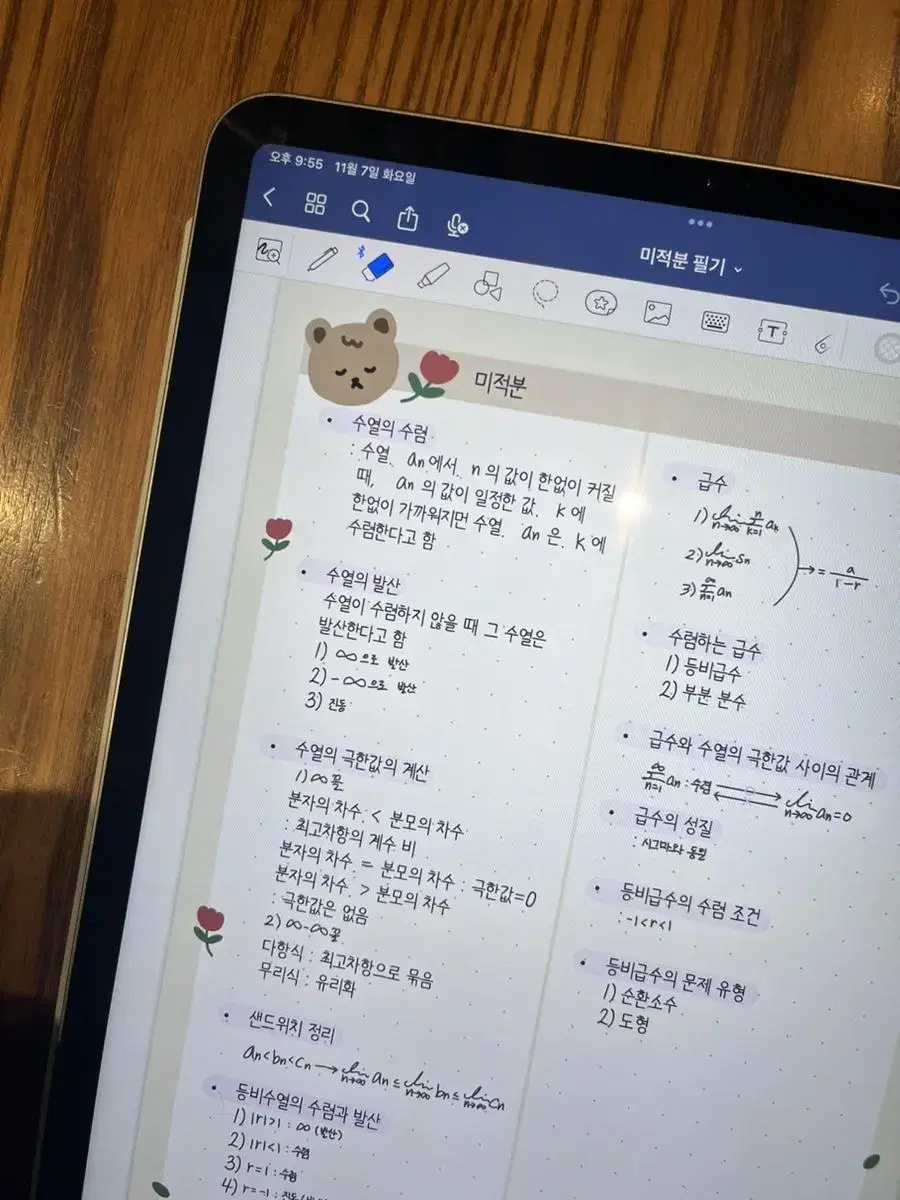 오후 9:55 11월 7일 화요일
미적분 필기
T
미적분
• 수열의 수렴
: 수열 an에서 n의 값이 한없이 커질
때, an의 값이 일정한 값 k에
한없이 가까워지면 수열 an은 k에
수렴한다고 함
• 수열의 발산
수열이 수렴하지 않을 때 그 수열은
발산한다고 함
1) ∞으로 발산
2) -∞으로 발산
3) 진동
• 수열의 극한값의 계산
1) ∞꼴
분자의 차수 < 분모의 차수
: 최고차항의 계수 비
분자의 차수 = 분모의 차수 : 극한값=0
분자의 차수 > 분모의 차수
: 극한값은 없음
2) ∞-∞꼴
다항식 : 최고차항으로 묶음
무리식 : 유리화
• 샌드위치 정리
an<bn<cn → lim n→∞ an ≤ lim n→∞ bn ≤ lim n→∞ cn
• 등비수열의 수렴과 발산
1) |r|>1 : ∞ (발산)
2) |r|<1 : 수렴
3) r=1 : 수렴
4) r=-1 : 진동
• 급수
1) lim n→∞ n Σ k=1 ak
2) lim n→∞ Sn
3) ∞ Σ n=1 an
→ = a/1-r
• 수렴하는 급수
1) 등비급수
2) 부분 분수
• 급수와 수열의 극한값 사이의 관계
∞ Σ n=1 an : 수렴 ⇄ lim n→∞ an=0
• 급수의 성질
: 시그마와 동일
• 등비급수의 수렴 조건
: -1<r<1
• 등비급수의 문제 유형
1) 순환소수
2) 도형